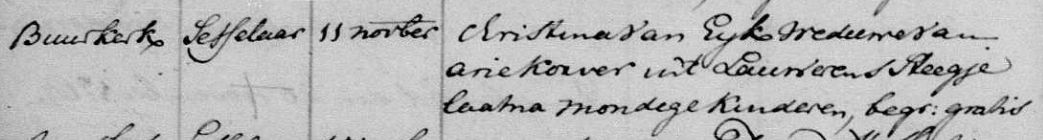 Buurkerk Setselaar 11 novber Christina van Eyk weduwe van
arie Kouver uit Laurierens Steegje
laat na mondege Kinderen, begr: gratis